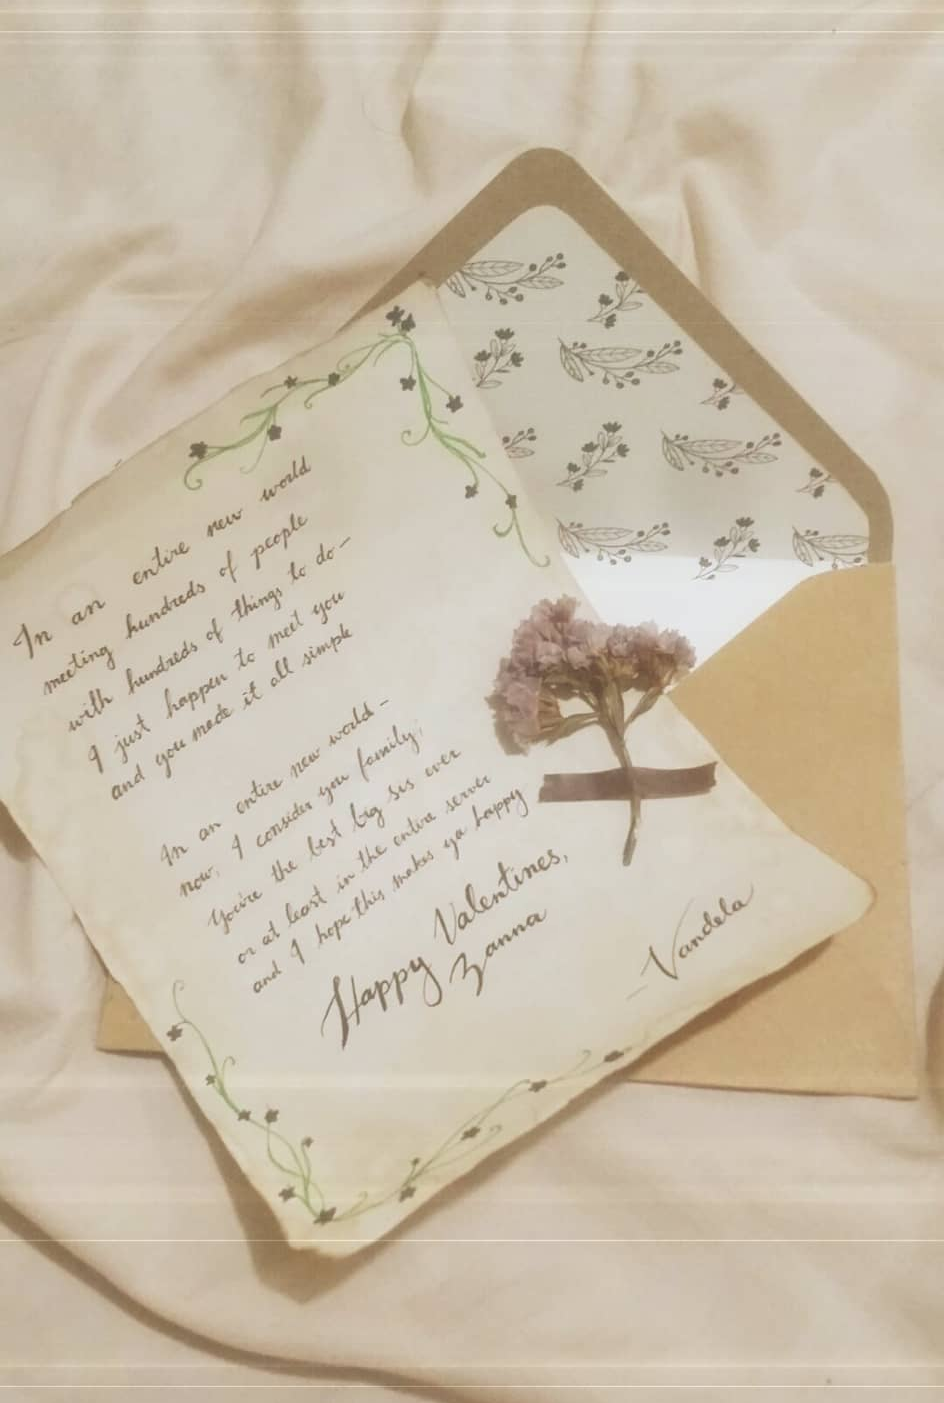 In an entire new world
meeting hundreds of people
with hundreds of things to do–
I just happen to meet you
and you made it all simple
In an entire new world–
now, I consider you family,
You're the best big sis ever
or at least in the entire server
and I hope this makes ya happy
Happy Valentines,
Zanna
– Vandela